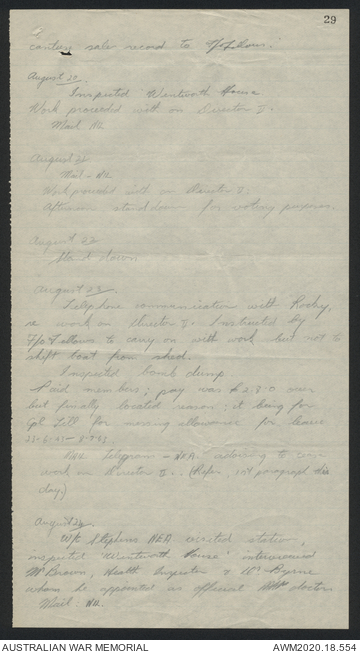 29
canteen sale record to F/o Fellows.
August 20.
Inspected Wentworth House
Work proceeded with on Director II.
Mail Nil.
August 21
Mail - Nil
Work proceeded with on Director II.
Afternoon stand down for voting purposes.
August 22
Stand down
August 23
Telephone communication with Rocky,
re work on Director II. Instructed by
F/o Fellows to carry on with work but not to
shift boat from shed.
Inspected bomb dump
Paid members; pay was £2.8.0 over
but finally located reason; it being for
Cpl for messing allowance for leave
Telegram - NEA. advising to cease
work on Director II. (Refer 1st paragraph this
day)
August 24
W/C Stephens NEA visited station,
inspected 'Wentworth House' interviewed
Mr Brown, Health Inspector & Dr Byrne
whom he appointed as official doctor
Mail: Nil.
AUSTRALIAN WAR MEMORIAL
AWM2020.18.554